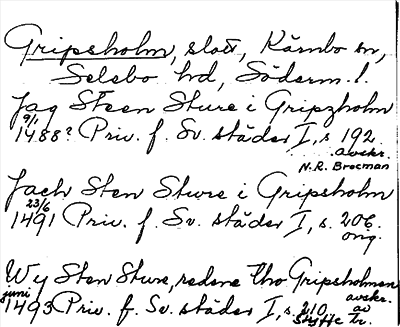 Gripsholm, slott, Kärnbo sn,
Selebo hd, Söderm. l.
Jag Steen Sture i Gripzholm
9/1
1488? Priv. f. Sv. städer I, s 192.
avskr.
N.R. Brocman
Jach Sten Stwre i Gripsholm
23/6
1491 Priv. f. Sv. städer I, s. 206.
orig.
Wy Sten Sture, redere tho Gripsholmen
juni
1493 Priv. f. Sv. städer I, s. 210
avskr.
av
tr.